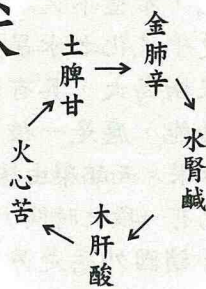 土脾甘
金肺辛
水腎鹹
木肝酸
火心苦